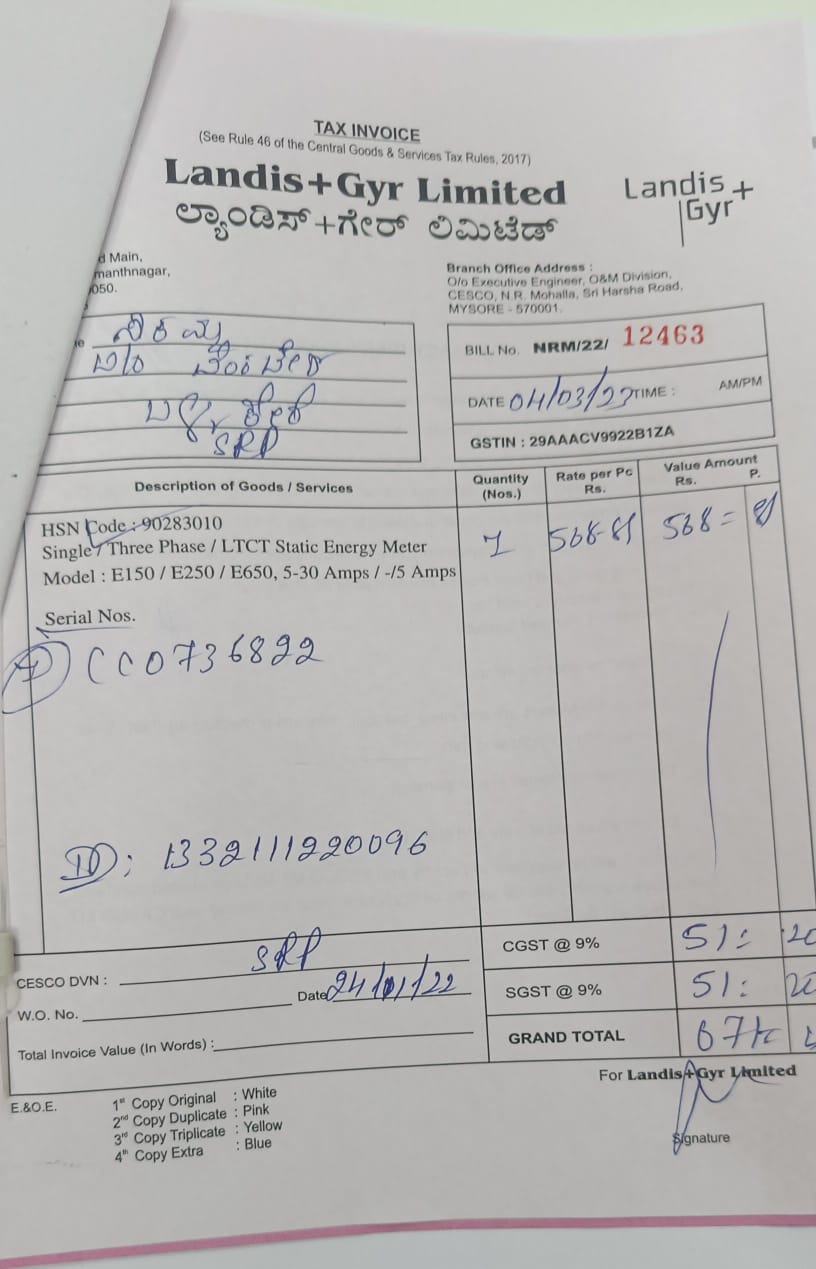 TAX INVOICE
(See Rule 46 of the Central Goods & Services Tax Rules, 2017)
Landis+Gyr Limited
Landis+
Gyr
ಲ್ಯಾಂಡಿಸ್+ಗೇರ್ ಲಿಮಿಟೆಡ್
d Main,
manthnagar,
050.
Branch Office Address :
O/o Executive Engineer, O&M Division,
CESCO, N.R. Mohalla, Sri Harsha Road,
MYSORE - 570001.
SRP
BILL No. NRM/22/ 12463
DATE 04/03/22 TIME : AM/PM
GSTIN : 29AAACV9922B1ZA
Description of Goods / Services Quantity (Nos.) Rate per Pc Rs. Value Amount Rs. P.
HSN Code : 90283010
Single / Three Phase / LTCT Static Energy Meter 1 568-81 568=81
Model : E150 / E250 / E650, 5-30 Amps / -/5 Amps
Serial Nos.
CC0736822
ID: 1332111220096
CGST @ 9% 51: 20
SGST @ 9% 51: 20
GRAND TOTAL
CESCO DVN : SRP
W.O. No. Date 24/01/22
Total Invoice Value (In Words) :
For Landis+Gyr Limited
E.&O.E.
1st Copy Original : White
2nd Copy Duplicate : Pink
3rd Copy Triplicate : Yellow
4th Copy Extra : Blue
Signature